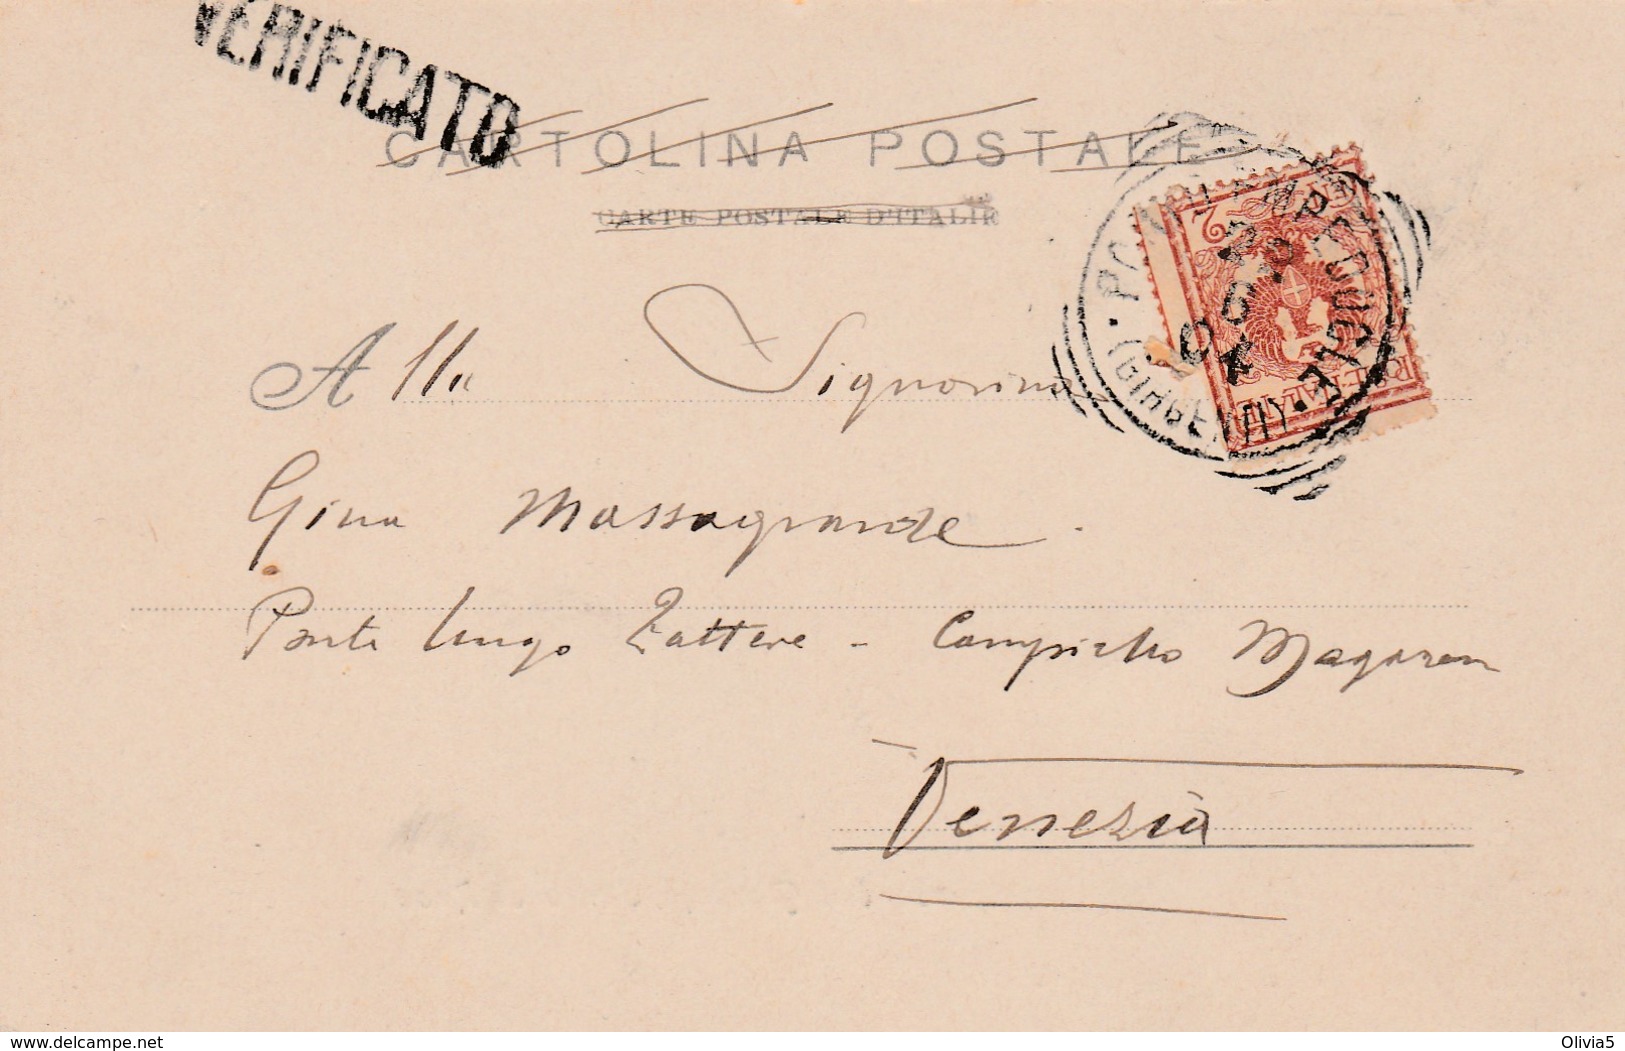 VERIFICATO
CARTOLINA POSTALE
CARTE POSTALE D'ITALIE
PORTO EMPEDOCLE
22
6
04
(GIRGENTI)
2
Alla Signorina
Gina Massagrande
Ponte lungo Zattere - Campiello Magazen
Venezia
www.delcampe.net
Olivia5